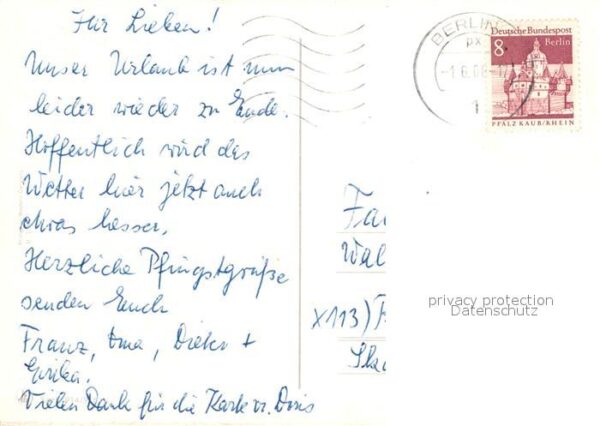 Ihr Lieben!
Unser Urlaub ist nun
leider wieder zu Ende.
Hoffentlich wird das
Wetter hier jetzt auch
etwas besser.
Herzliche Pfingstgrüße
senden Euch
Franz, Oma, Dieter +
Erika.
Vielen Dank für die Karte v. Doris
BERLIN
-1.6.66-1
1
Deutsche Bundespost
8 Berlin
PFALZ KAUB/RHEIN
Fa
Wal
X113)
Ska
privacy protection
Datenschutz